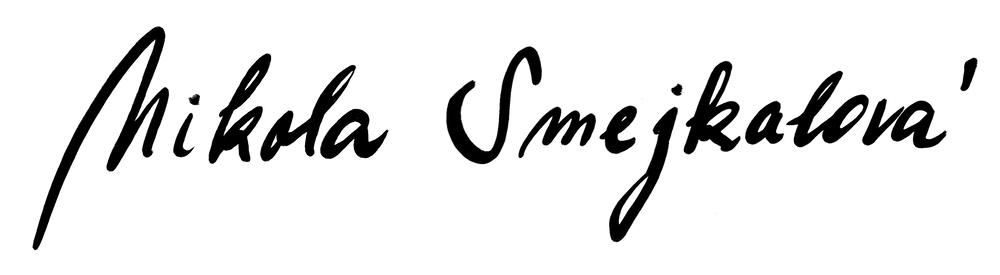 Mikola Smejkalová